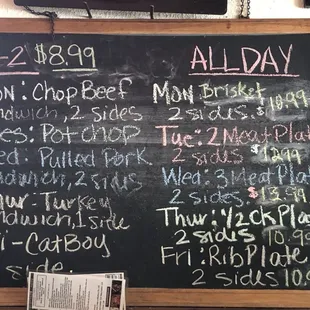 -2 $8.99
ON: Chop Beef
andwich, 2 sides
es: Pot chop
ed: Pulled Pork
andwich, 2 sides
ur: Turkey
andwich, 1 side
i-CatBoy
side
ALL DAY
Mon Brisket
2 sides. $10.99
Tue: 2 Meat Plat
2 sides $12.99
Wed: 3 Meat Plat
2 sides $13.99
Thur: 1/2 ck Pla
2 sides 10.9
Fri: Rib Plate
2 sides 10.9